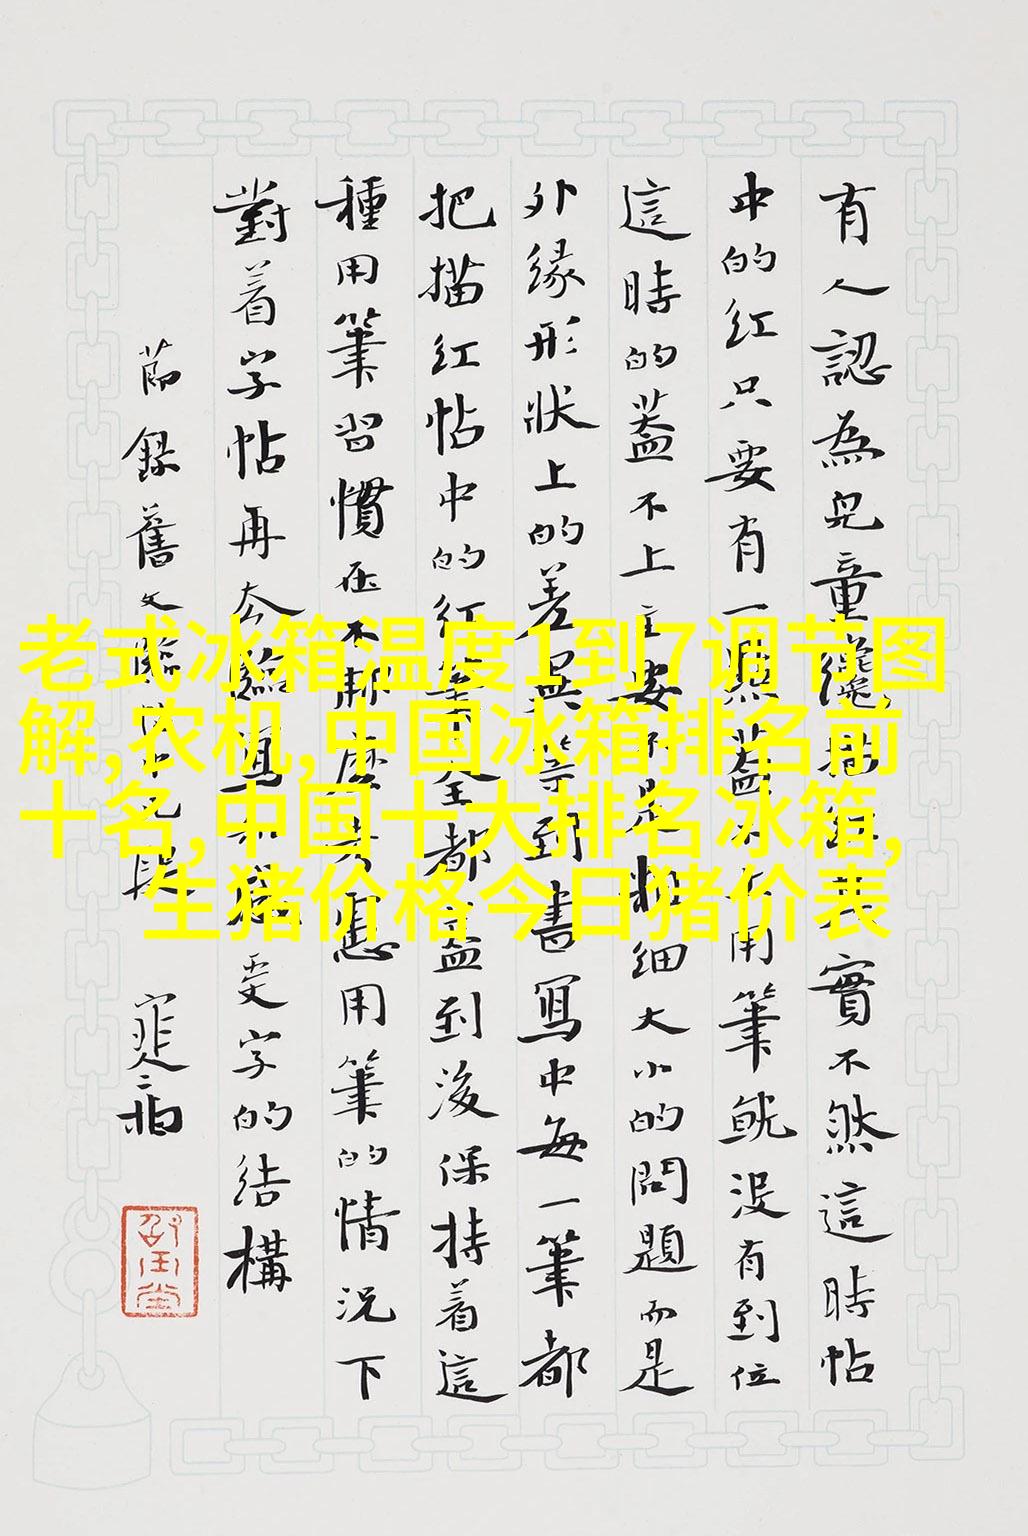 有人認為兒童
實不然這時帖
中的紅只要有一
蓋不
用筆就沒有到位
這時的蓋不上主要不是粗細大小的問題而是
外緣形狀上的差異等到書寫中每一筆都
把描紅帖中的紅
全都蓋到後保持着這
種用筆習慣在不那麼
慮用筆的情況下
對着字帖再去臨寫
受字的結構
節錄舊文
老式冰箱温度1到7调节图
解,农机,中国冰箱排名前
十名,中国十大排名冰箱,
生猪价格今日猪价表